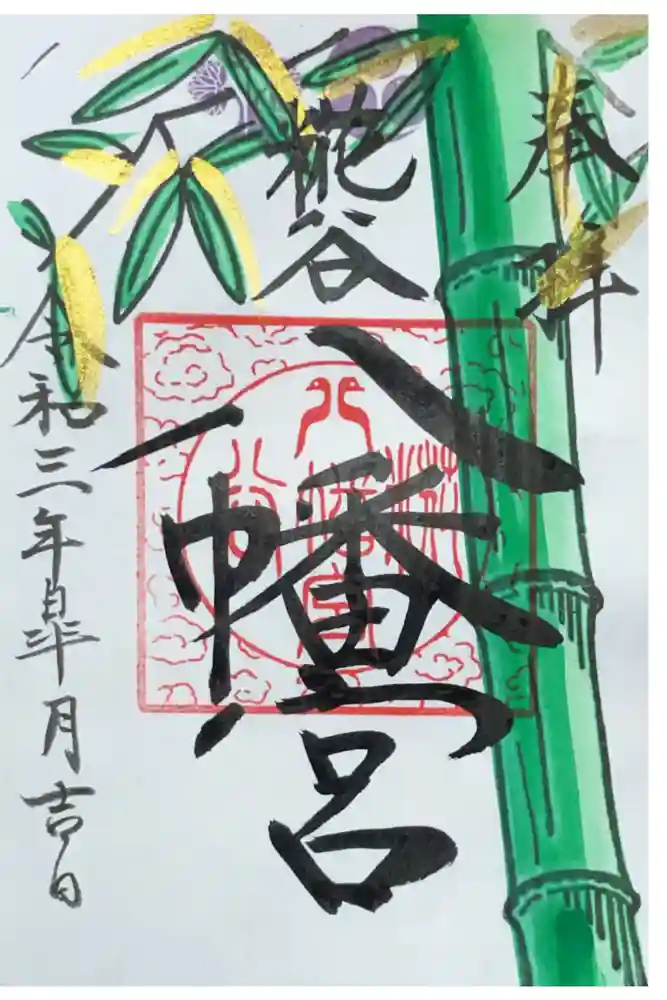 奉拝
糀谷
八幡宮
令和三年皐月吉日